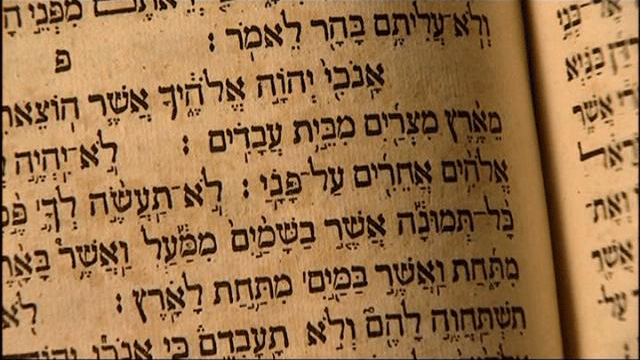 מִפְּנֵי
וְלֹא־עֲלִיתֶם בָּהָר לֵאמֹר׃
פ
אָנֹכִי יְהוָה אֱלֹהֶיךָ אֲשֶׁר הוֹצֵאתִ
מֵאֶרֶץ מִצְרַיִם מִבֵּית עֲבָדִים׃ לֹא־יִהְיֶה
אֱלֹהִים אֲחֵרִים עַל־פָּנָי׃ לֹא־תַעֲשֶׂה לְךָ
כָּל־תְּמוּנָה אֲשֶׁר בַּשָּׁמַיִם מִמַּעַל וַאֲשֶׁר בָּאָרֶ
מִתָּחַת וַאֲשֶׁר בַּמַּיִם מִתַּחַת לָאָרֶץ׃ לֹא
תִשְׁתַּחֲוֶה לָהֶם וְלֹא תָעָבְדֵם כִּי אָנֹכִי יְהוָ